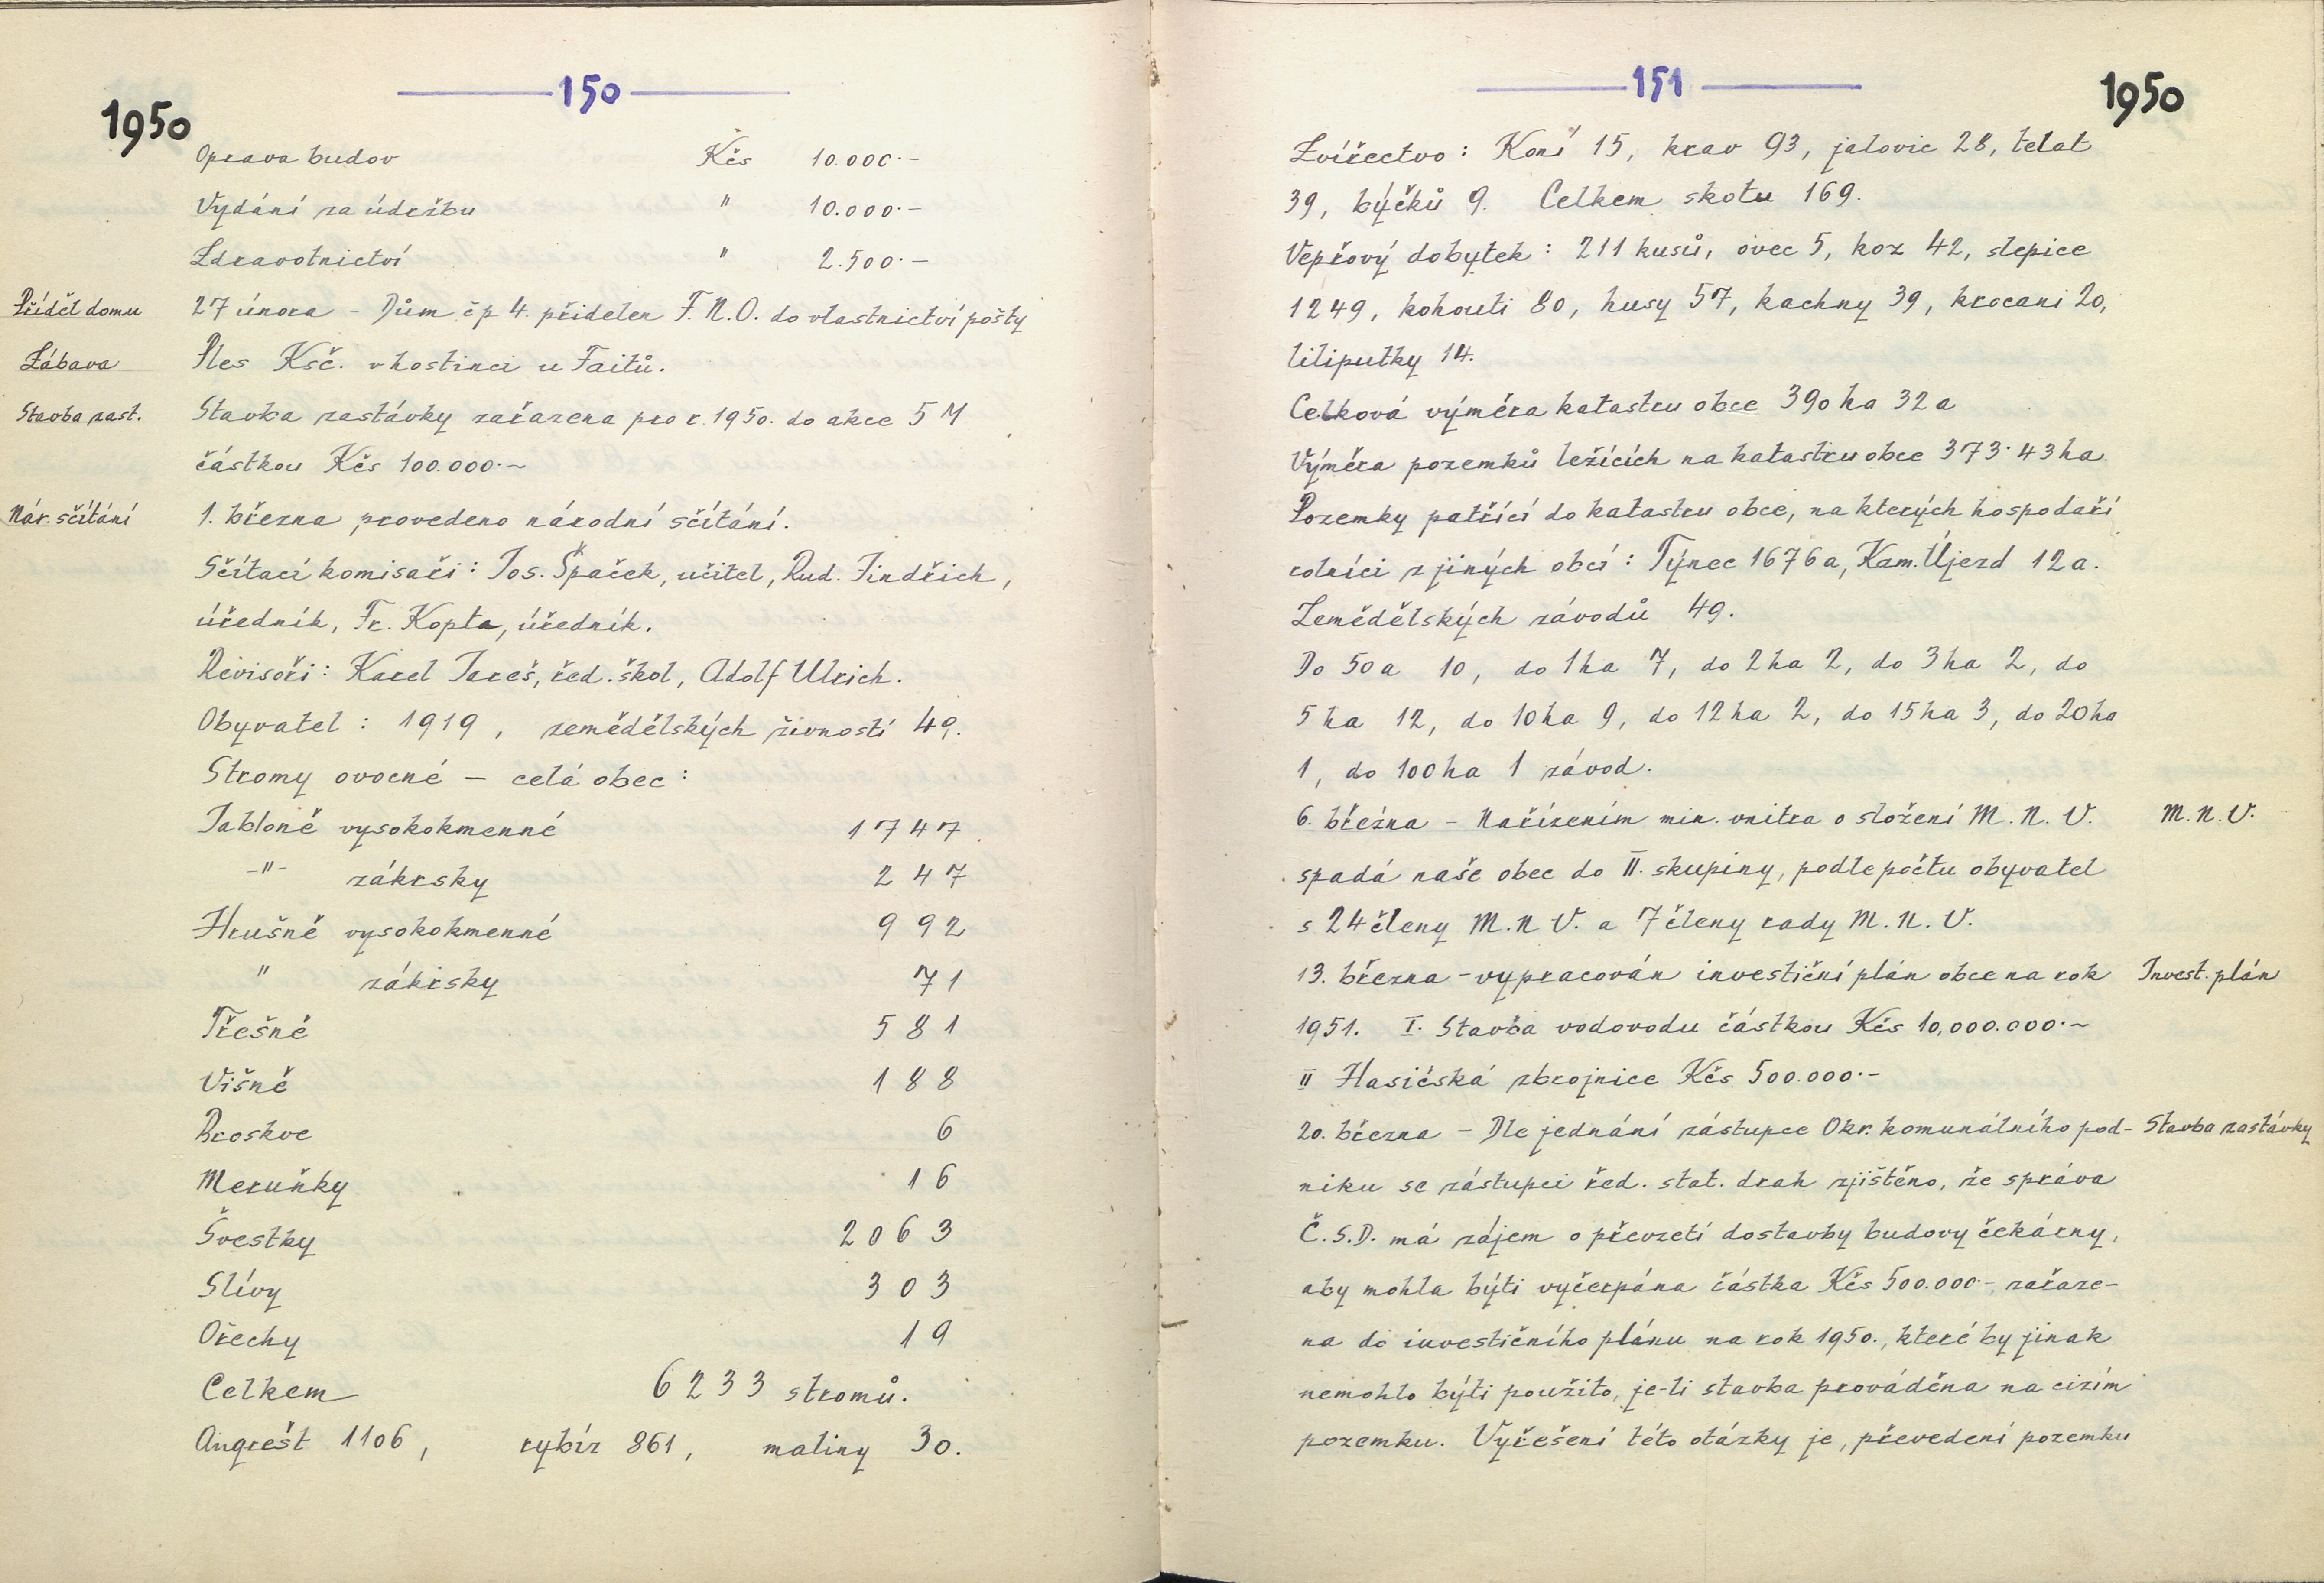 150
1950
Oprava budov Kčs 10.000.-
Vydání za údržbu " 10.000.-
Zdravotnictví " 2.500.-
Příděl domu 27 února - Dům čp 4. přidelen F.N.O. do vlastnictví pošty
Zábava Ples Ksč. v hostinci u Faitů.
Stavba zast. Stavba zastávky zařazena pro r. 1950. do akce 5 M
částkou Kčs 100.000.-
Nár. sčítání 1. března provedeno národní sčítání.
Sčítací komisaři: Jos. Špaček, učitel, Rud. Jindřich,
úředník, Fr. Kopta, úředník.
Revisoři: Karel Jareš, řed. škol, Adolf Ulrich.
Obyvatel: 1919, zemědělských živností 49.
Stromy ovocné - celá obec:
Jabloně vysokokmenné 1747
-"- zákrsky 247
Hrušně vysokokmenné 992
" zákrsky 71
Třešně 581
Višně 188
Broskve 6
Meruňky 16
Švestky 2063
Slívy 303
Ořechy 19
Celkem 6233 stromů.
Angrešt 1106, rybíz 861, maliny 30.
151
1950
Zvířectvo: Koní 15, krav 93, jalovic 28, telat
39, býčků 9. Celkem skotu 169.
Vepřový dobytek: 211 kusů, ovec 5, koz 42, slepice
1249, kohouti 80, husy 57, kachny 39, krocani 20,
liliputky 14.
Celková výměra katastru obce 390 ha 32 a
Výměra pozemků ležících na katastru obce 373.43 ha
Pozemky patřící do katastru obce, na kterých hospodaří
rolníci z jiných obcí: Týnec 1676 a, Kam. Újezd 12 a.
Zemědělských závodů 49.
Do 50 a 10, do 1 ha 7, do 2 ha 2, do 3 ha 2, do
5 ha 12, do 10 ha 9, do 12 ha 2, do 15 ha 3, do 20 ha
1, do 100 ha 1 závod.
6. března - Nařízením min. vnitra o složení M.N.V. M.N.V.
spadá naše obec do II. skupiny, podle počtu obyvatel
s 24 členy M.N V. a 7 členy rady M.N.V.
13. března - vypracován investiční plán obce na rok Invest. plán
1951. I. Stavba vodovodu částkou Kčs 10,000.000.-
II Hasičská zbrojnice Kčs 500.000.-
20. března - Dle jednání zástupce Okr. komunálního pod- Stavba zastávky
niku se zástupci řed. stat. drah zjištěno, že správa
Č.S.D. má zájem o převzetí dostavby budovy čekárny,
aby mohla býti vyčerpána částka Kčs 500.000.- zařaze-
na do investičního plánu na rok 1950., které by jinak
nemohlo býti použito, je-li stavba prováděna na cizím
pozemku. Vyřešení této otázky je, převedení pozemku